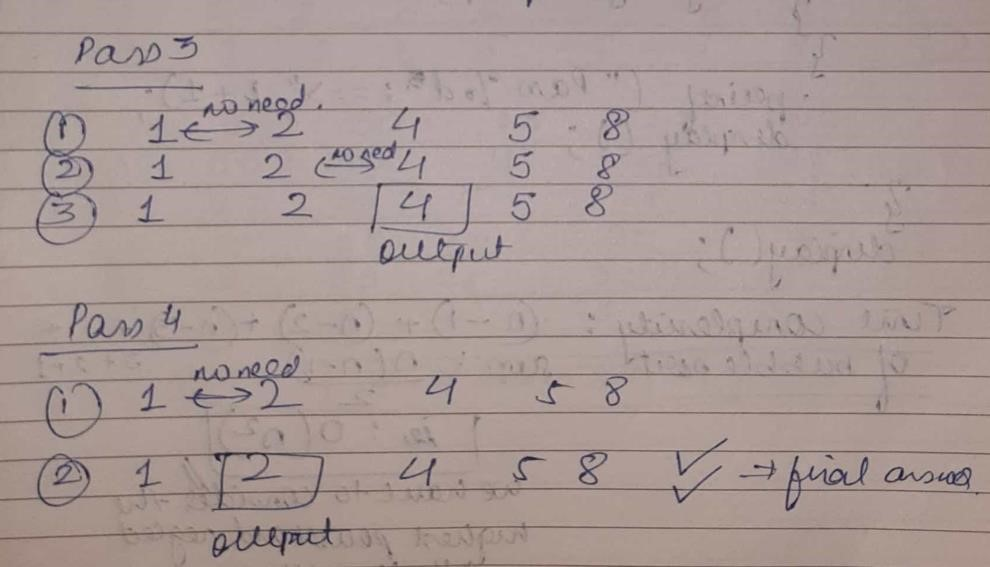 Pass 3
no need.
① 1 ↔ 2 4 5 8
no need
② 1 2 ↔ 4 5 8
③ 1 2 4 5 8
output
Pass 4
no need
① 1 ↔ 2 4 5 8
② 1 2 4 5 8 ✓✓ → final answer
output